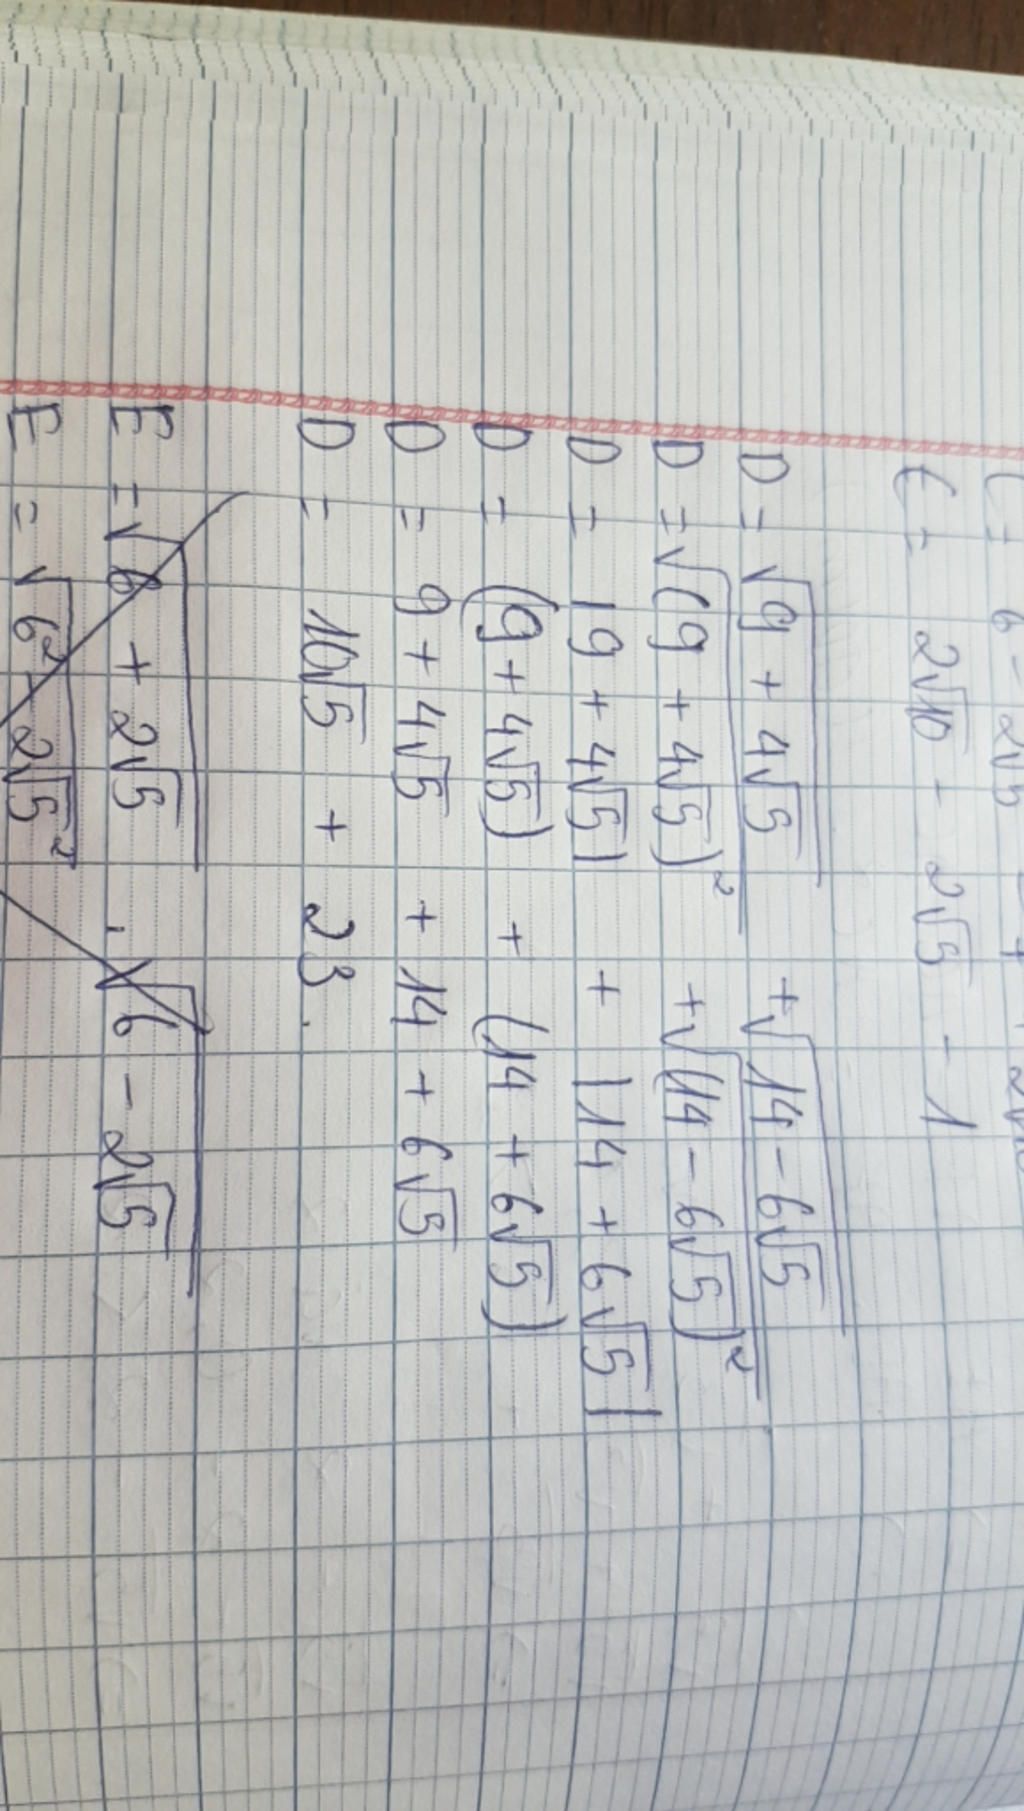 C = 6 - 2√5
C = 2√10 - 2√5 - 1
D = √(9 + 4√5) + √(14 - 6√5)
D = √((9 + 4√5)²) + √((14 - 6√5)²)
D = |9 + 4√5| + |14 + 6√5|
D = (9 + 4√5) + (14 + 6√5)
D = 9 + 4√5 + 14 + 6√5
D = 10√5 + 23.
E = √(6 + 2√5) . √(6 - 2√5)
E = √(6² + 2√5²)